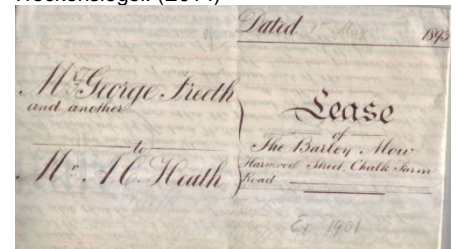 Dated 1st May 1893
Mr George Freeth
and another
to
Mr A C. Heath
Lease
of
The Barley Mow
Harmood Street, Chalk Farm
Road
Ex 1901